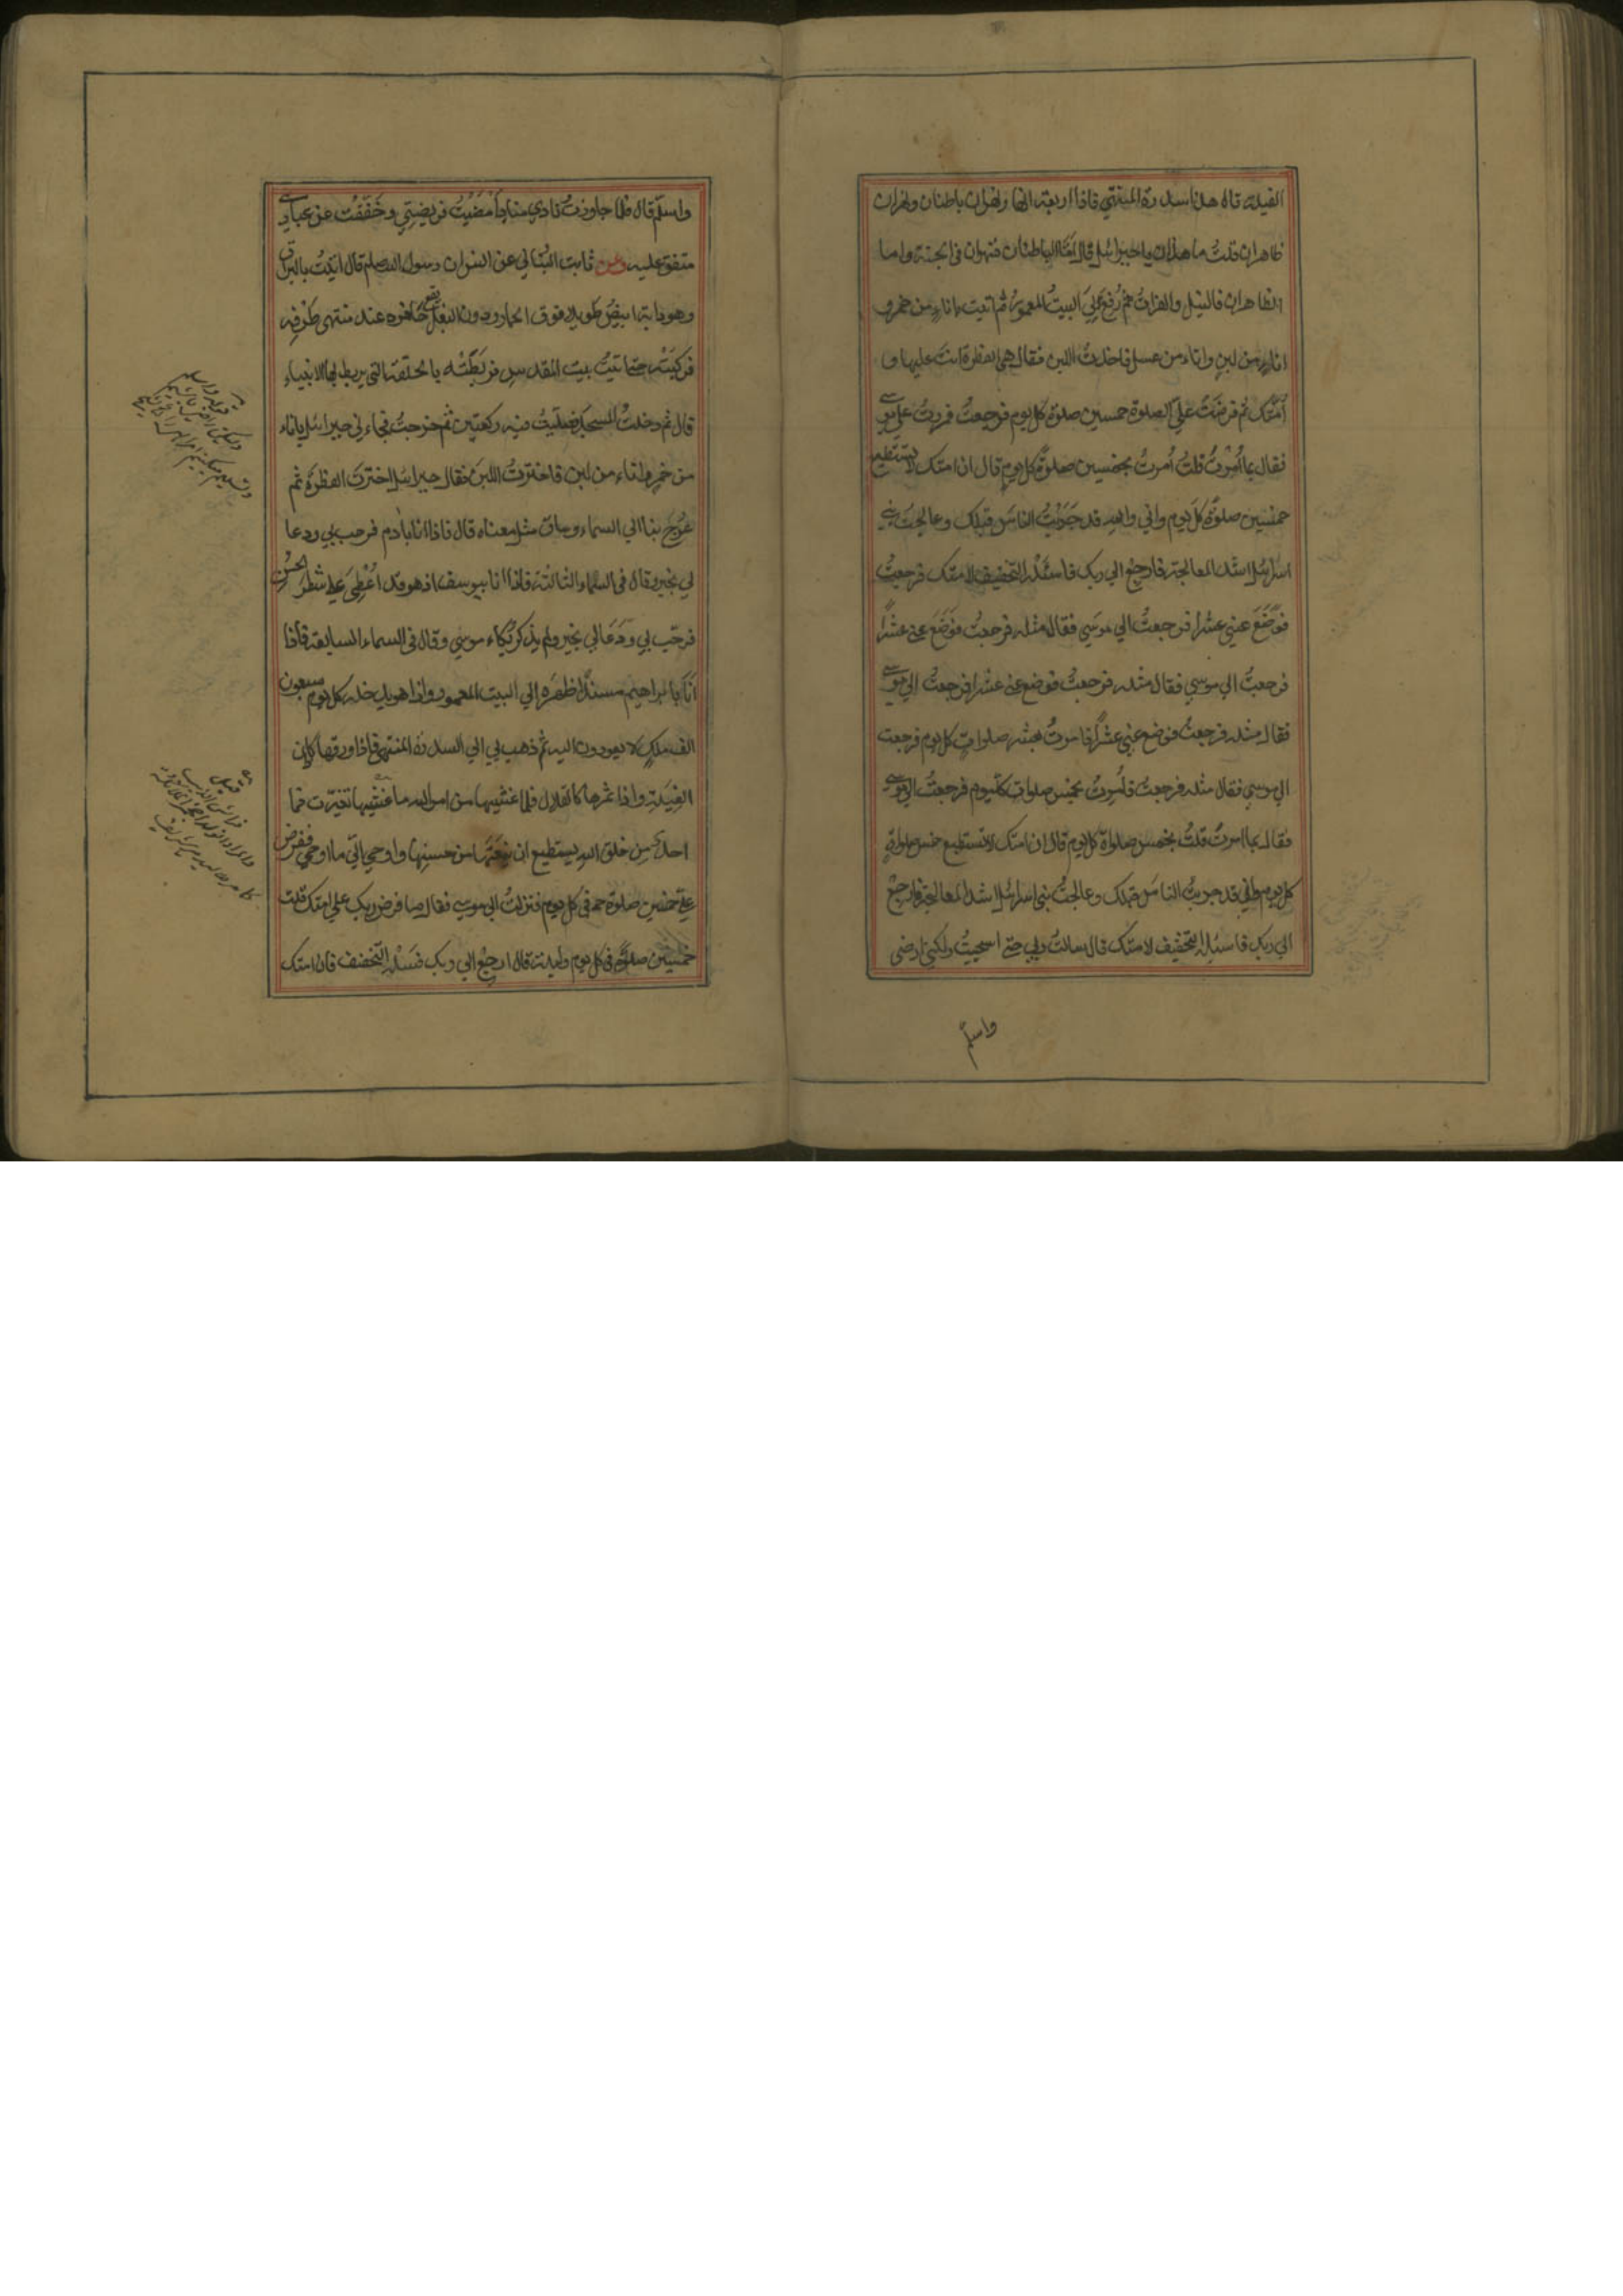 الفيلة قال هذا سدرة المنتهي فاذا اربعة انهار نهران باطنان ونهران
ظاهران قلتُ ما هذان يا جبرائيل قال اَمّا الباطنان فنهران في الجنة واما
الظاهران فالنيل والفراتُ ثم رُفِعَ لِيَ البيتُ المعمورُ ثم اتيت باناءٍ من خمرٍ و
اناءٍ من لبنٍ واناء من عسلٍ فاخذتُ اللبن فقال هي الفطرة انتَ عليها و
اُمّتُك ثم فرضَتْ عَلَيَّ الصلوة خمسين صلوة كل يوم فرجعتُ فمررتُ علي موسي
فقال بما اُمِرْتَ قلتُ اُمرتُ بخمسين صلوةً كل يومٍ قال ان امتك لا تستطيع
خمسين صلوةً كل يوم واني والله قد جَرَّبْتُ الناسَ قبلك وعالجتُ بني
اسرائيل اشد المعالجة فارجع الي ربك فاسئله التخفيف لامتك فرجعتُ
فوَضَعَ عنّي عشرًا فرجعتُ الي موسي فقال مثله فرجعتُ فوَضَعَ عنّي عشرًا
فرجعتُ الي موسي فقال مثله فرجعتُ فوضع عنّي عشرًا فرجعتُ الي موسي
فقال مثله فرجعتُ فوضع عنّي عشرًا فامرتُ بعشر صلواتٍ كل يوم فرجعت
الي موسي فقال مثله فرجعتُ فاُمِرتُ بخمس صلواتٍ كل يوم فرجعتُ الي موسي
فقال بما امرتَ قلتُ بخمس صلواة كل يوم قال ان امتك لا تستطيع خمس صلواةٍ
كل يوم واني قد جربتُ الناسَ قبلك وعالجتُ بني اسرائيل اشد المعالجة فارجعْ
الي ربك فاسئله التخفيف لامتك قال سالتُ ربي حتي استحييتُ ولكني ارضي
واسلّم
واسلّم قال فلما جاوزتُ نادي منادٍ اَمْضَيْتُ فريضتي وخَفَّفْتُ عن عبادي
متفق عليه وعن ثابت البُناني عن انس ان رسول الله صلعم قال اتيتُ بالبراق
وهو دابة ابيضُ طويل فوق الحمار ودون البغل يقع حافره عند منتهي طَرْفِه
فركبتُه حتي اتيتُ بيت المقدس فربَطتُه بالحلقة التي يربط بها الانبياء
قال ثم دخلتُ المسجد فصلّيتُ فيه ركعتين ثم خرجتُ فجاءني جبرائيل باناء
من خمر واناء من لبن فاخترتُ اللبنَ فقال جبرائيل اخترتَ الفطرة ثم
عُرِجَ بنا الي السماء وساق مثل معناه قال فاذا انا بآدم فرحب بي ودعا
لي بخير وقال في السماء الثالثة فاذا انا بيوسف اذ هو قد اُعْطِيَ شطرَ الحُسْنِ
فرحّب بي ودَعَا لي بخير ولم يذكر بُكاء موسي وقال في السماء السابعة فاذا
اَنَا بابراهيم مسندًا ظهرَه الي البيت المعمور واذا هو يدخله كل يوم سبعون
الف ملكٍ لا يعودون اليه ثم ذهب بي الي السدرة المنتهي فاذا ورقها كاذان
الفِيَلَةِ واذا ثمرها كالقلال فلما غشيها من امر الله ما غشيها تغيّرت فما
احدٌ من خلق الله يستطيع ان ينعتَها من حسنها واوحي اليّ ما اوحي ففرض
عليّ خمسين صلوة في كل يوم فنزلتُ الي موسي فقال ما فرض ربك علي امتك قلت
خمسين صلوة في كل يوم وليلة قال ارجعْ الي ربك فسَلْه التخفيف فان امتك